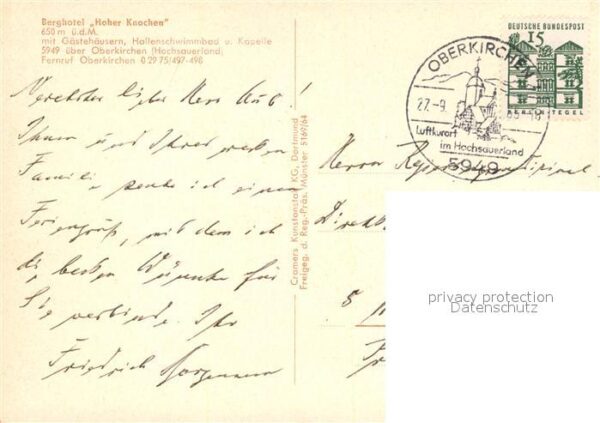 Berghotel „Hoher Knochen"
650 m ü.d.M.
mit Gästehäusern, Hallenschwimmbad u. Kapelle
5949 über Oberkirchen (Hochsauerland)
Fernruf Oberkirchen 0 29 75/497-498
Verehrter lieber Herr
Ihnen und Ihrer
Familie sende ich einen
Feriengruß, mit dem ich
die besten Wünsche für
Sie verbinde. Ihr
Friedrich
Cramers Kunstanstalt KG, Dortmund
Freigeg. d. Reg.-Präs. Münster 5169/64
DEUTSCHE BUNDESPOST
15
BERLIN-TEGEL
OBERKIRCHEN
27.-9.
Luftkurort
im Hochsauerland
5949
Herrn
privacy protection
Datenschutz